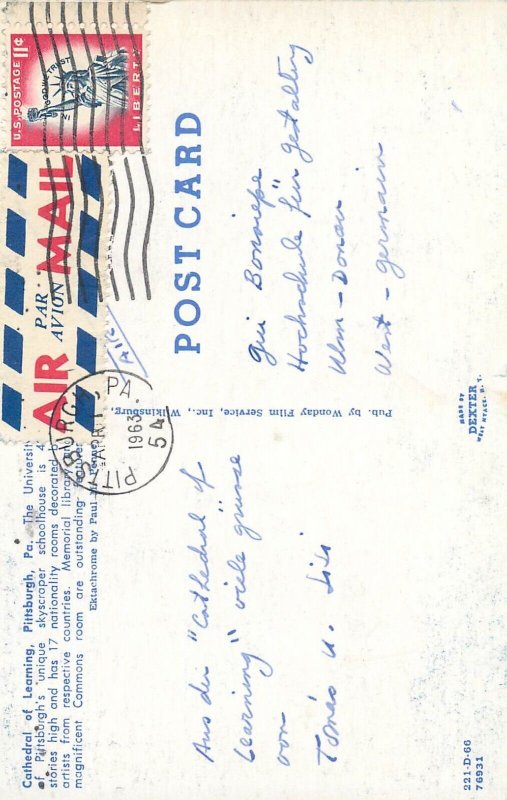 Cathedral of Learning, Pittsburgh, Pa. The Universit
of Pittsburgh's unique skyscraper schoolhouse is 4
stories high and has 17 nationality rooms decorated b
artists from respective countries. Memorial library and
magnificent Commons room are outstanding features
Ektachrome by Paul
Aus der "Cathedral of
Learning" viele grüsse
von
Tomás u. Lisi
221-D-66
76931
Pub. by Wonday Film Service, Inc., Wilkinsburg,
MADE BY
DEXTER
WEST NYACK, N. Y.
POST CARD
AIR MAIL
PAR AVION
Air
PITTSBURGH, PA.
APR 1
1963
54
U.S. POSTAGE 11¢
IN GOD WE TRUST
LIBERTY
Gui Bonsiepe
Hochschule für Gestaltung
Ulm-Donau
West-Germany